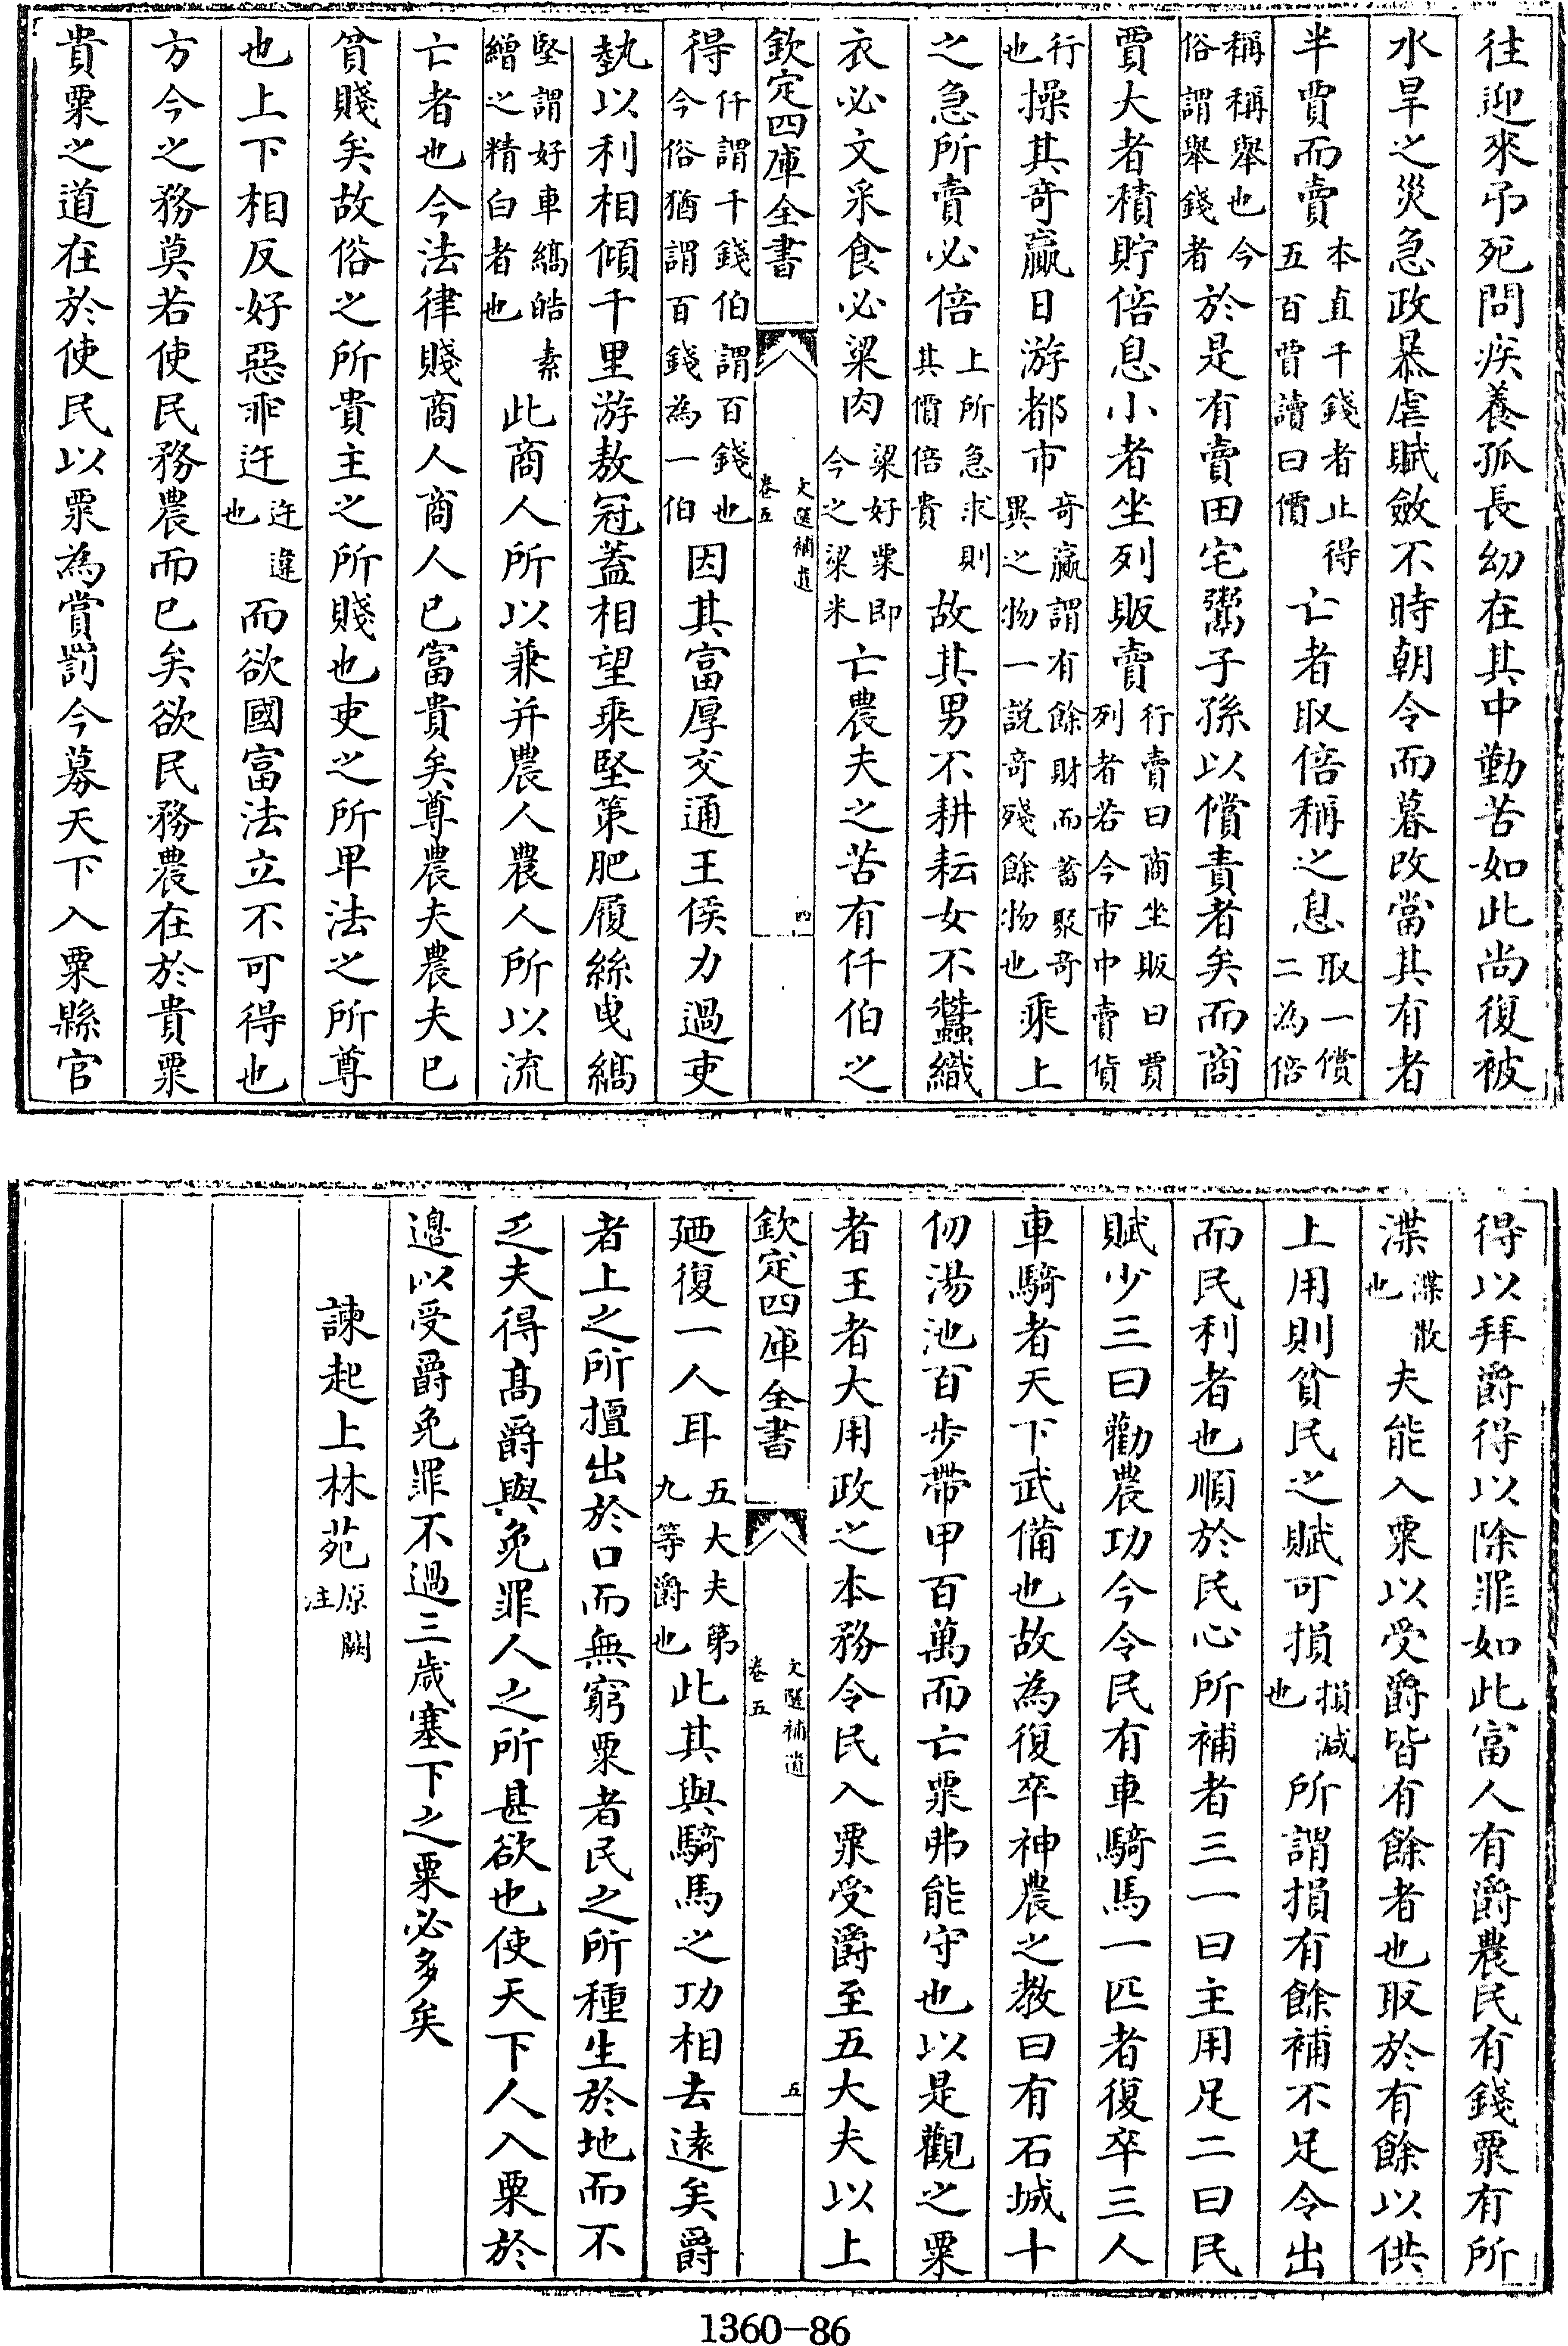 往迎來弔死問疾養孤長幼在其中勤苦如此尚復被
水旱之災急政暴虐賦斂不時朝令而暮改當其有者
半賈而賣本直千錢者止得五百賈讀曰價亡者取倍稱之息取一償二為倍
稱稱舉也今俗謂舉錢者於是有賣田宅鬻子孫以償責者矣而商
賈大者積貯倍息小者坐列販賣行賣曰商坐販曰賈列者若今市中賣貨
行也操其奇贏日游都市奇贏謂有餘財而蓄聚奇異之物一説奇殘餘物也乘上
之急所賣必倍上所急求則其價倍貴故其男不耕耘女不蠶織
衣必文采食必粱肉粱好粟即今之粱米亡農夫之苦有仟伯之
欽定四庫全書
文選補遺
卷五
四
得仟謂千錢伯謂百錢也今俗猶謂百錢為一伯因其富厚交通王侯力過吏
埶以利相傾千里游敖冠蓋相望乘堅策肥履絲曳縞
堅謂好車縞皓素繒之精白者也此商人所以兼并農人農人所以流
亡者也今法律賤商人商人已富貴矣尊農夫農夫已
貧賤矣故俗之所貴主之所賤也吏之所卑法之所尊
也上下相反好惡乖迕迕違也而欲國富法立不可得也
方今之務莫若使民務農而已矣欲民務農在於貴粟
貴粟之道在於使民以粟為賞罰今募天下入粟縣官
得以拜爵得以除罪如此富人有爵農民有錢粟有所
渫渫散也夫能入粟以受爵皆有餘者也取於有餘以供
上用則貧民之賦可損損減也所謂損有餘補不足令出
而民利者也順於民心所補者三一曰主用足二曰民
賦少三曰勸農功今令民有車騎馬一匹者復卒三人
車騎者天下武備也故為復卒神農之教曰有石城十
仞湯池百步帶甲百萬而亡粟弗能守也以是觀之粟
者王者大用政之本務令民入粟受爵至五大夫以上
欽定四庫全書
文選補遺
卷五
五
廼復一人耳五大夫第九等爵也此其與騎馬之功相去遠矣爵
者上之所擅出於口而無窮粟者民之所種生於地而不
乏夫得髙爵與免罪人之所甚欲也使天下人入粟於
邊以受爵免罪不過三歲塞下之粟必多矣
諫起上林苑原闕注
1360-86